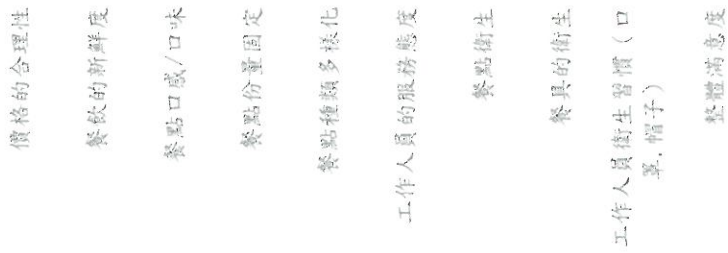 價格的合理性
餐飲的新鮮度
餐點口感/口味
餐點份量固定
餐點種類多樣化
工作人員的服務態度
餐點衛生
餐具的衛生
工作人員衛生習慣(口
罩、帽子)
整體滿意度